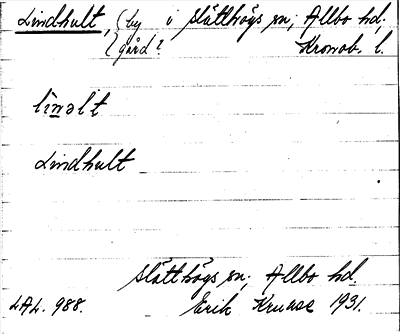 Lindhult, {by i Slätthögs sn, Allbo hd,
{gård? Kronob. l.
lìnəlt
Lindhult
Slätthögs sn, Allbo hd.
LAL. 988. Erik Kruuse 1931.